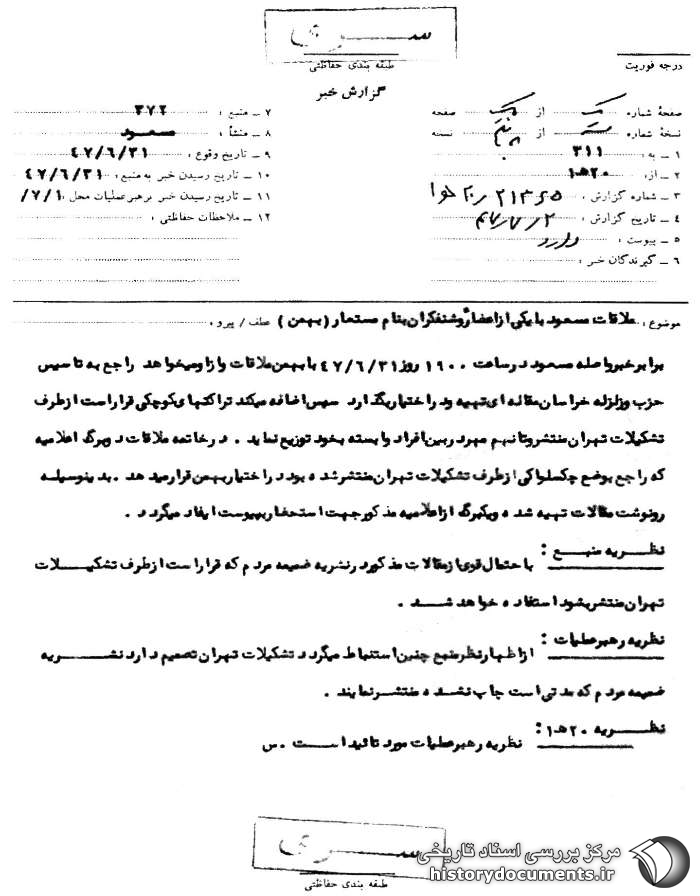 سری
طبقه بندی حفاظتی
درجه فوریت
گزارش خبر
صفحهٔ شماره یک از یک صفحه
نسخهٔ شماره از پنج نسخه
۱ ـ به : ۳۱۱
۲ ـ از: ۲۰هـ۱
۳ ـ شماره گزارش :
۴ ـ تاریخ گزارش :
۵ ـ پیوست : دارد
۶ ـ گیرندگان خبر :
۷ ـ منبع : ۳۷۲
۸ ـ منشأ : مسعود
۹ ـ تاریخ وقوع : ۴۷/۶/۳۱
۱۰ ـ تاریخ رسیدن خبر به منبع : ۴۷/۶/۳۱
۱۱ ـ تاریخ رسیدن خبر برهبر عملیات محل : ۷/۱/
۱۲ ـ ملاحظات حفاظتی :
موضوع : ملاقات مسعود با یکی از اعضا روشنفکران بنام مستعار (بهمن ) عطف / پیرو :
برابر خبر واصله مسعود در ساعت ۱۹۰۰ روز ۴۷/۶/۳۱ با بهمن ملاقات و از او میخواهد راجع به تاسیس
حزب و زلزله خراسان مقاله ای تهیه و در اختیار بگذارد سپس اضافه میکند تراکتهای کوچکی قرار است از طرف
تشکیلات تهران منتشر و تا نهم مهر در بین افراد وابسته بخود توزیع نماید . در خاتمه ملاقات دو برگ اعلامیه
که راجع بوضع چکسلواکی از طرف تشکیلات تهران منتشر شده بود در اختیار بهمن قرار میدهد . بدینوسیله
رونوشت مقالات تهیه شده و یکبرگ از اعلامیه مذکور جهت استحضار بپیوست ایفاد میگردد .
نظریه منبع : با احتمال قوی از مقالات مذکور در نشریه ضمیمه مردم که قرار است از طرف تشکیلات
تهران منتشر بشود استفاده خواهد شد .
نظریه رهبر عملیات : از اظهار نظر منبع چنین استنباط میگردد تشکیلات تهران تصمیم دارد نشریه
ضمیمه مردم که مدتی است چاپ نشده منتشر نمایند .
نظریه ۲۰هـ۱: نظریه رهبر عملیات مورد تائید است . س
سری
طبقه بندی حفاظتی
مرکز بررسی اسناد تاریخی
historydocuments.ir